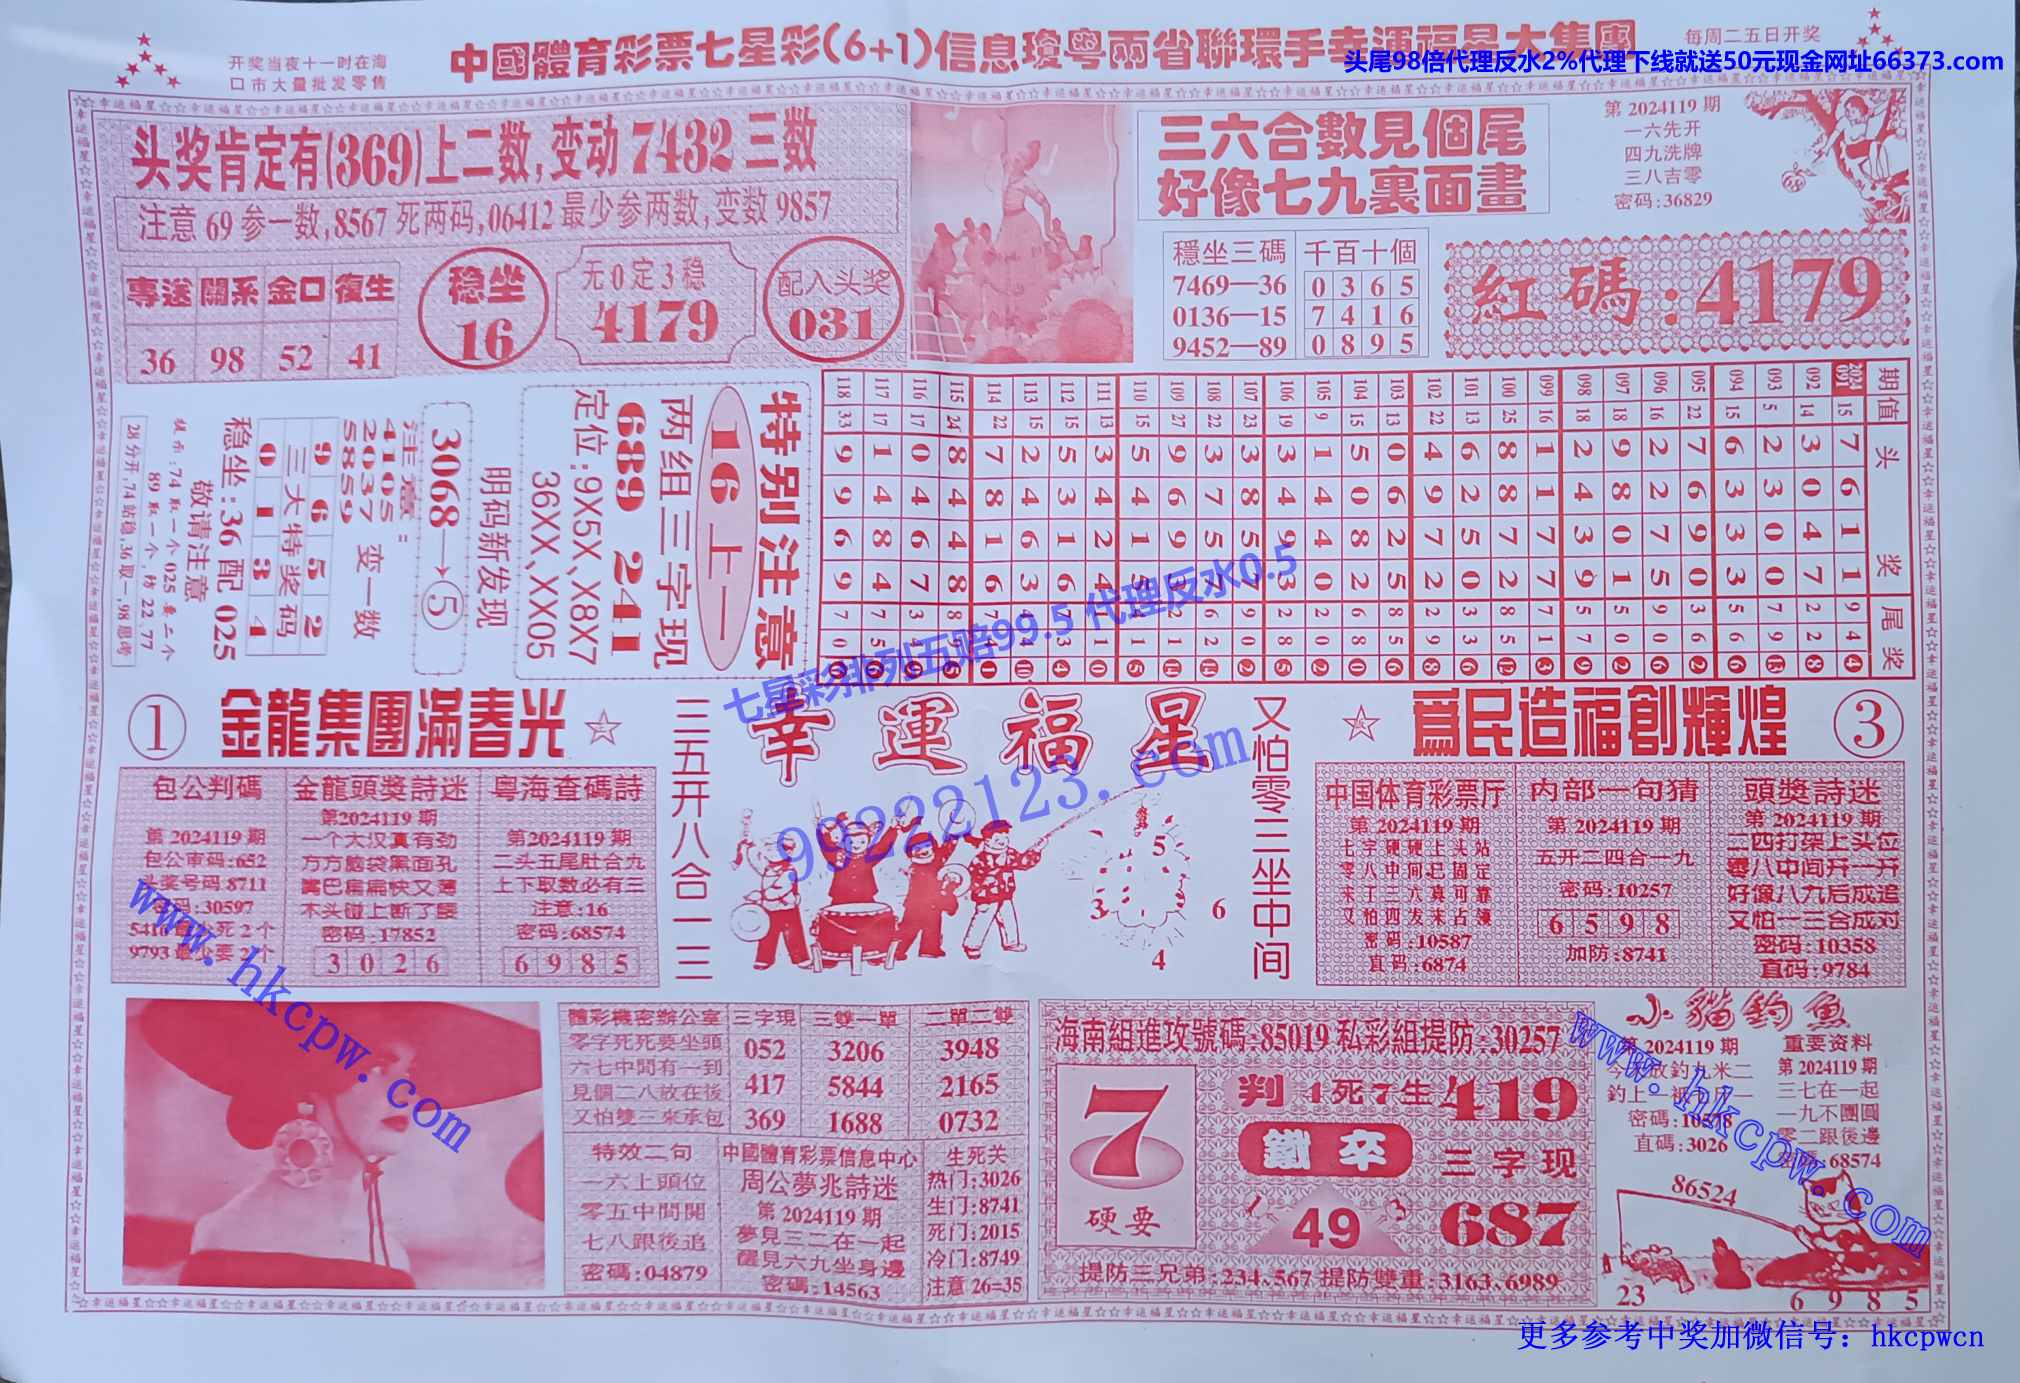 中國體育彩票七星彩(6+1)信息瓊粤兩省聯環手幸運福星大集團
开奖当夜十一时在海
口市大量批发零售
每周二五日开奖
头尾98倍代理反水2%代理下线就送50元现金网址66373.com
头奖肯定有(369)上二数,变动7432三数
注意69参一数,8567死两码,06412最少参两数,变数9857
專送 關系 金口 復生
36 98 52 41
稳坐
16
无0定3稳
4179
配入头奖
031
三六合數見個尾
好像七九裏面畫
第2024119期
一六先开
四九洗牌
三八吉零
密码:36829
穩坐三碼
7469—36
0136—15
9452—89
千百十個
0 3 6 5
7 4 1 6
0 8 9 5
紅碼:4179
特别注意
16上一
两组三字现
689 241
定位:9X5X、X8X7
36XX、XX05
明码新发现
3068→5
注意:
4105
2037 变一数
5859
9 6 5 2
三大特奖码
0 1 3 4
稳坐:36配025
敬请注意
28分开,74站稳,36取一,98思考
期 值 头奖 尾奖
118 33 9 9 6 9 7 0
117 17 1 4 8 4 7 5
116 17 0 4 6 7 3
115 24 8 4 4 8 8
114 22 7 8 1 6
113 15 2 4 6 3
112 15 5 3 1 6
111 13 3 4 2 4
110 15 5 4 1 5
109 27 9 6 9
108 22 3 7 5 7 6 2
107 23 3 8 5 7 9 0
106 19 3 4 9 3 2 8
105 9 1 4 4 0 2 0
104 15 5 0 8 2 6 8
103 13 0 6 2 5 8 5
102 22 4 9 7 2 2 9
101 13 6 2 5 0 3 3
100 25 8 8 7 2 8 5
099 16 1 1 7 7 7 1
098 18 2 4 3 9 5 7
097 18 9 8 0 1 5 0
096 16 2 2 7 5 9 0
095 22 7 6 9 0 3 6
094 15 6 3 3 3 5 6
093 5 2 3 0 0 7 9
092 14 3 0 4 7 2 2
2024 091 15 7 6 1 1 9 4
七星彩排列五赔99.5 代理反水0.5
99222123.com
① 金龍集團滿春光
包公判碼
第2024119期
包公审码:652
头奖号码:8711
密码:30597
金龍頭獎詩迷
第2024119期
一个大汉真有劲
方方脑袋黑面孔
嘴巴扁扁快又薄
木头碰上断了腰
密码:17852
3 0 2 6
粵海查碼詩
第2024119期
二头五尾肚合九
上下取数必有三
注意:16
密码:68574
6 9 8 5
三五开八合一二
幸運福星
又怕零三坐中间
5
3
6
4
爲民造福創輝煌 ③
中国体育彩票厅
第2024119期
七字硬硬上头站
零八中间已固定
来了三六真可靠
又怕四发来占领
密码:10587
直码:6874
内部一句猜
第2024119期
五开二四合一九
密码:10257
6 5 9 8
加防:8741
頭獎詩迷
第2024119期
二四打架上头位
零八中间开一开
好像八九后成追
又怕一三合成对
密码:10358
直码:9784
www.hkcpw.com
體彩機密辦公室
零字死死要坐頭
六七中間有一到
見個二八放在後
又怕雙三來承包
三字現
052
417
369
三雙一單
3206
5844
1688
二單二雙
3948
2165
0732
特效二句
一六上頭位
零五中間開
七八跟後追
密碼:04879
中國體育彩票信息中心
周公夢兆詩迷
第2024119期
夢見三二在一起
醒見六九坐身邊
密碼:14563
生死关
热门:3026
生门:8741
死门:2015
冷门:8749
注意26=35
海南組進攻號碼:85019私彩組提防:30257
7
硬要
判1死7生419
鐵卒
三字现
1 49 3
687
提防三兄弟:234、567提防雙重:3163、6989
小貓釣魚
第2024119期
密碼:10578
直碼:3026
重要资料
第2024119期
三七在一起
一九不團圓
零二跟後邊
密碼:68574
86524
23
6 9 8 5
www.hkcpw.com
更多参考中奖加微信号: hkcpwcn